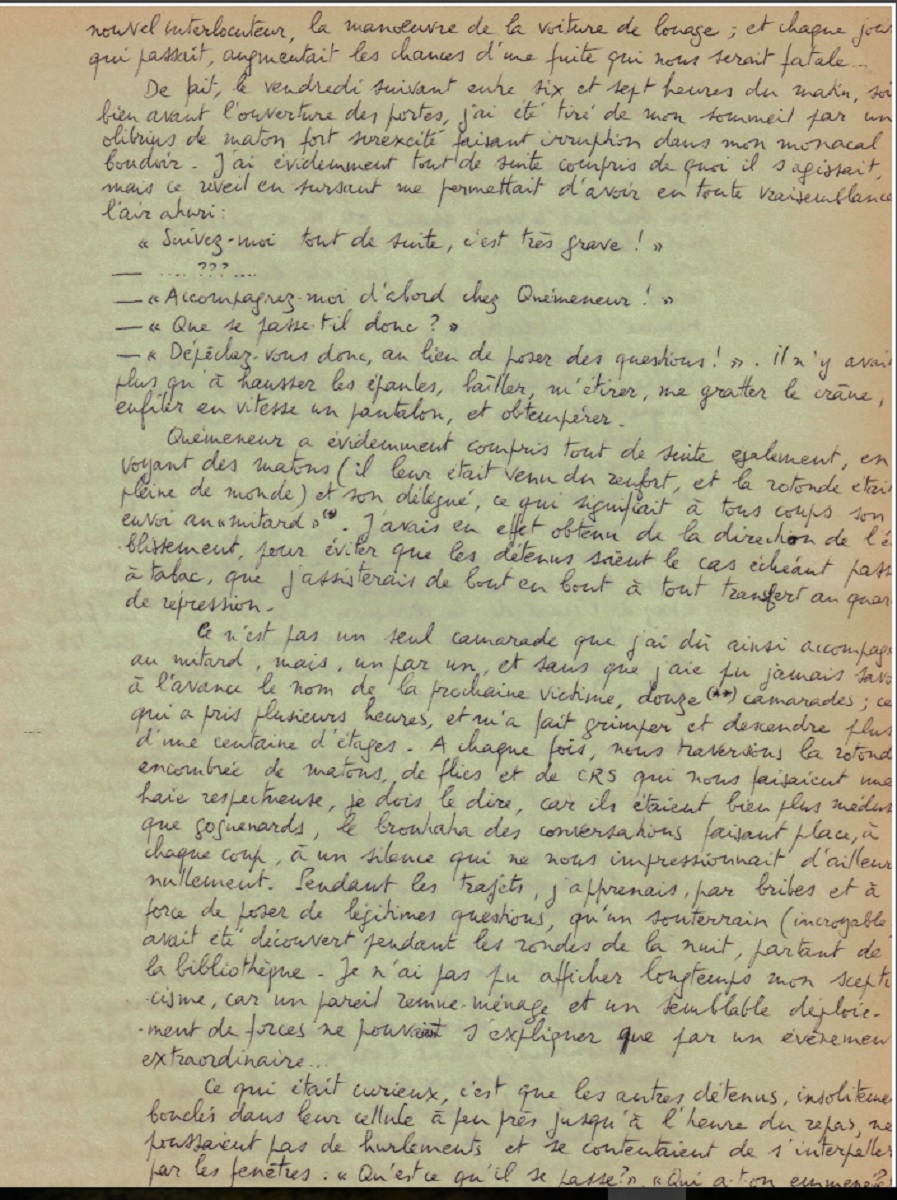 nouvel interlocuteur, la manœuvre de la voiture de louage ; et chaque jou
qui passait, augmentait les chances d'une fuite qui nous serait fatale...
De fait, le vendredi suivant entre six et sept heures du matin, soi
bien avant l'ouverture des portes, j'ai été tiré de mon sommeil par un
olibrius de maton fort surexcité faisant irruption dans mon monacal
boudoir. J'ai évidemment tout de suite compris de quoi il s'agissait,
mais ce réveil en sursaut me permettait d'avoir en toute vraisemblance
l'air ahuri :
« Suivez-moi tout de suite, c'est très grave ! »
— .... ??? ....
— « Accompagnez-moi d'abord chez Quémeneur ! »
— « Que se passe-t-il donc ? »
— « Dépêchez-vous donc, au lieu de poser des questions ! ». Il n'y avai
plus qu'à hausser les épaules, bâiller, m'étirer, me gratter le crâne,
enfiler en vitesse un pantalon, et obtempérer.
Quémeneur a évidemment compris tout de suite également, en
voyant des matons (il leur était venu du renfort, et la rotonde étai
pleine de monde) et son délégué, ce qui signifiait à tous coups son
envoi au « mitard » (*). J'avais en effet obtenu de la direction de l'é
-blissement, pour éviter que les détenus soient le cas échéant pass
à tabac, que j'assisterais de bout en bout à tout transfert au quar
de répression.
Ce n'est pas un seul camarade que j'ai dû ainsi accompagn
au mitard, mais, un par un, et sans que j'aie pu jamais sav
à l'avance le nom de la prochaine victime, douze (**) camarades ; ce
qui a pris plusieurs heures, et m'a fait grimper et descendre plus
d'une centaine d'étages. A chaque fois, nous traversions la rotond
encombrée de matons, de flics et de CRS qui nous faisaient une
haie respectueuse, je dois le dire, car ils étaient bien plus médus
que goguenards, le brouhaha des conversations faisant place, à
chaque coup, à un silence qui ne nous impressionnait d'ailleur
nullement. Pendant les trajets, j'apprenais, par bribes et à
force de poser de légitimes questions, qu'un souterrain (incroyable
avait été découvert pendant les rondes de la nuit, partant de
la bibliothèque. Je n'ai pas pu afficher longtemps mon scepti
-cisme, car un pareil remue-ménage et un semblable déploie-
-ment de forces ne pouvait s'expliquer que par un événemen
extraordinaire...
Ce qui était curieux, c'est que les autres détenus, insoliteme
bouclés dans leur cellule à peu près jusqu'à l'heure du repas, ne
poussaient pas de hurlements et se contentaient de s'interpeller
par les fenêtres : « Qu'est ce qu'il se passe ? », « Qui a-t-on emmené ?